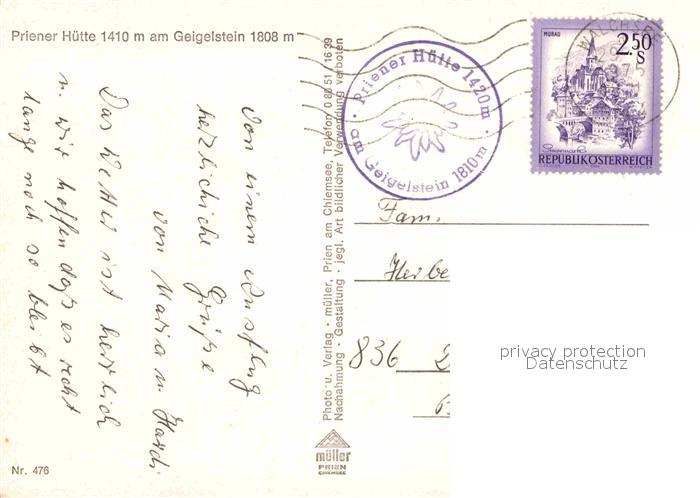 Priener Hütte 1410 m am Geigelstein 1808 m
Von einem Ausflug
herzlichiche Grüße
von Maria u. Hardi
Das Wetter ist herrlich
u. wir hoffen daß es recht
lange noch so bleibt
Photo u. Verlag · müller, Prien am Chiemsee, Telefon 0 80 51 / 16 39
Nachahmung · Gestaltung · jegl. Art bildlicher Verwendung verboten
· Priener Hütte 1420m ·
am Geigelstein 1810m
WALCHSEE
MURAU
2.50
S
Steiermark
REPUBLIK ÖSTERREICH
Fam.
Herbe
836 D
privacy protection
Datenschutz
müller
PRIEN
CHIEMSEE
Nr. 476